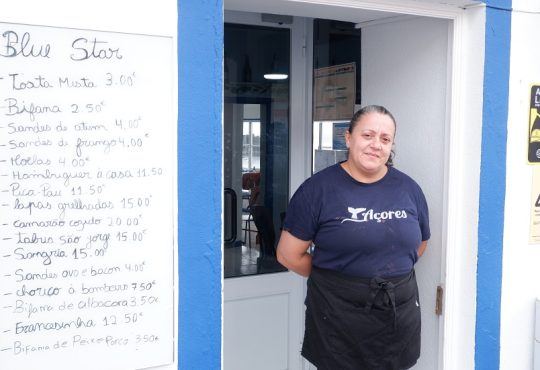 Blue Star
- Tosta Mista 3.00€
Bifana 2.50€
- Sandes de atum 4,00€
- Sandes de frango 4,00€
- Hotlas 4.00€
- Hamburguer à casa 11.50
- Pica-Pau 11.50€
- Lapas grelhadas 15.00€
- camarão cozido 20.00€
- tabus são jorge 15.00€
- Sangria 15.00
- Sandes ovo e bacon 4.00€
- choriço à bombeiro 7,50€
- Bifana de albacora 3.50€
- Francesinha 12.50€
- Bifama de Peixe Porco 3.50€
Açores